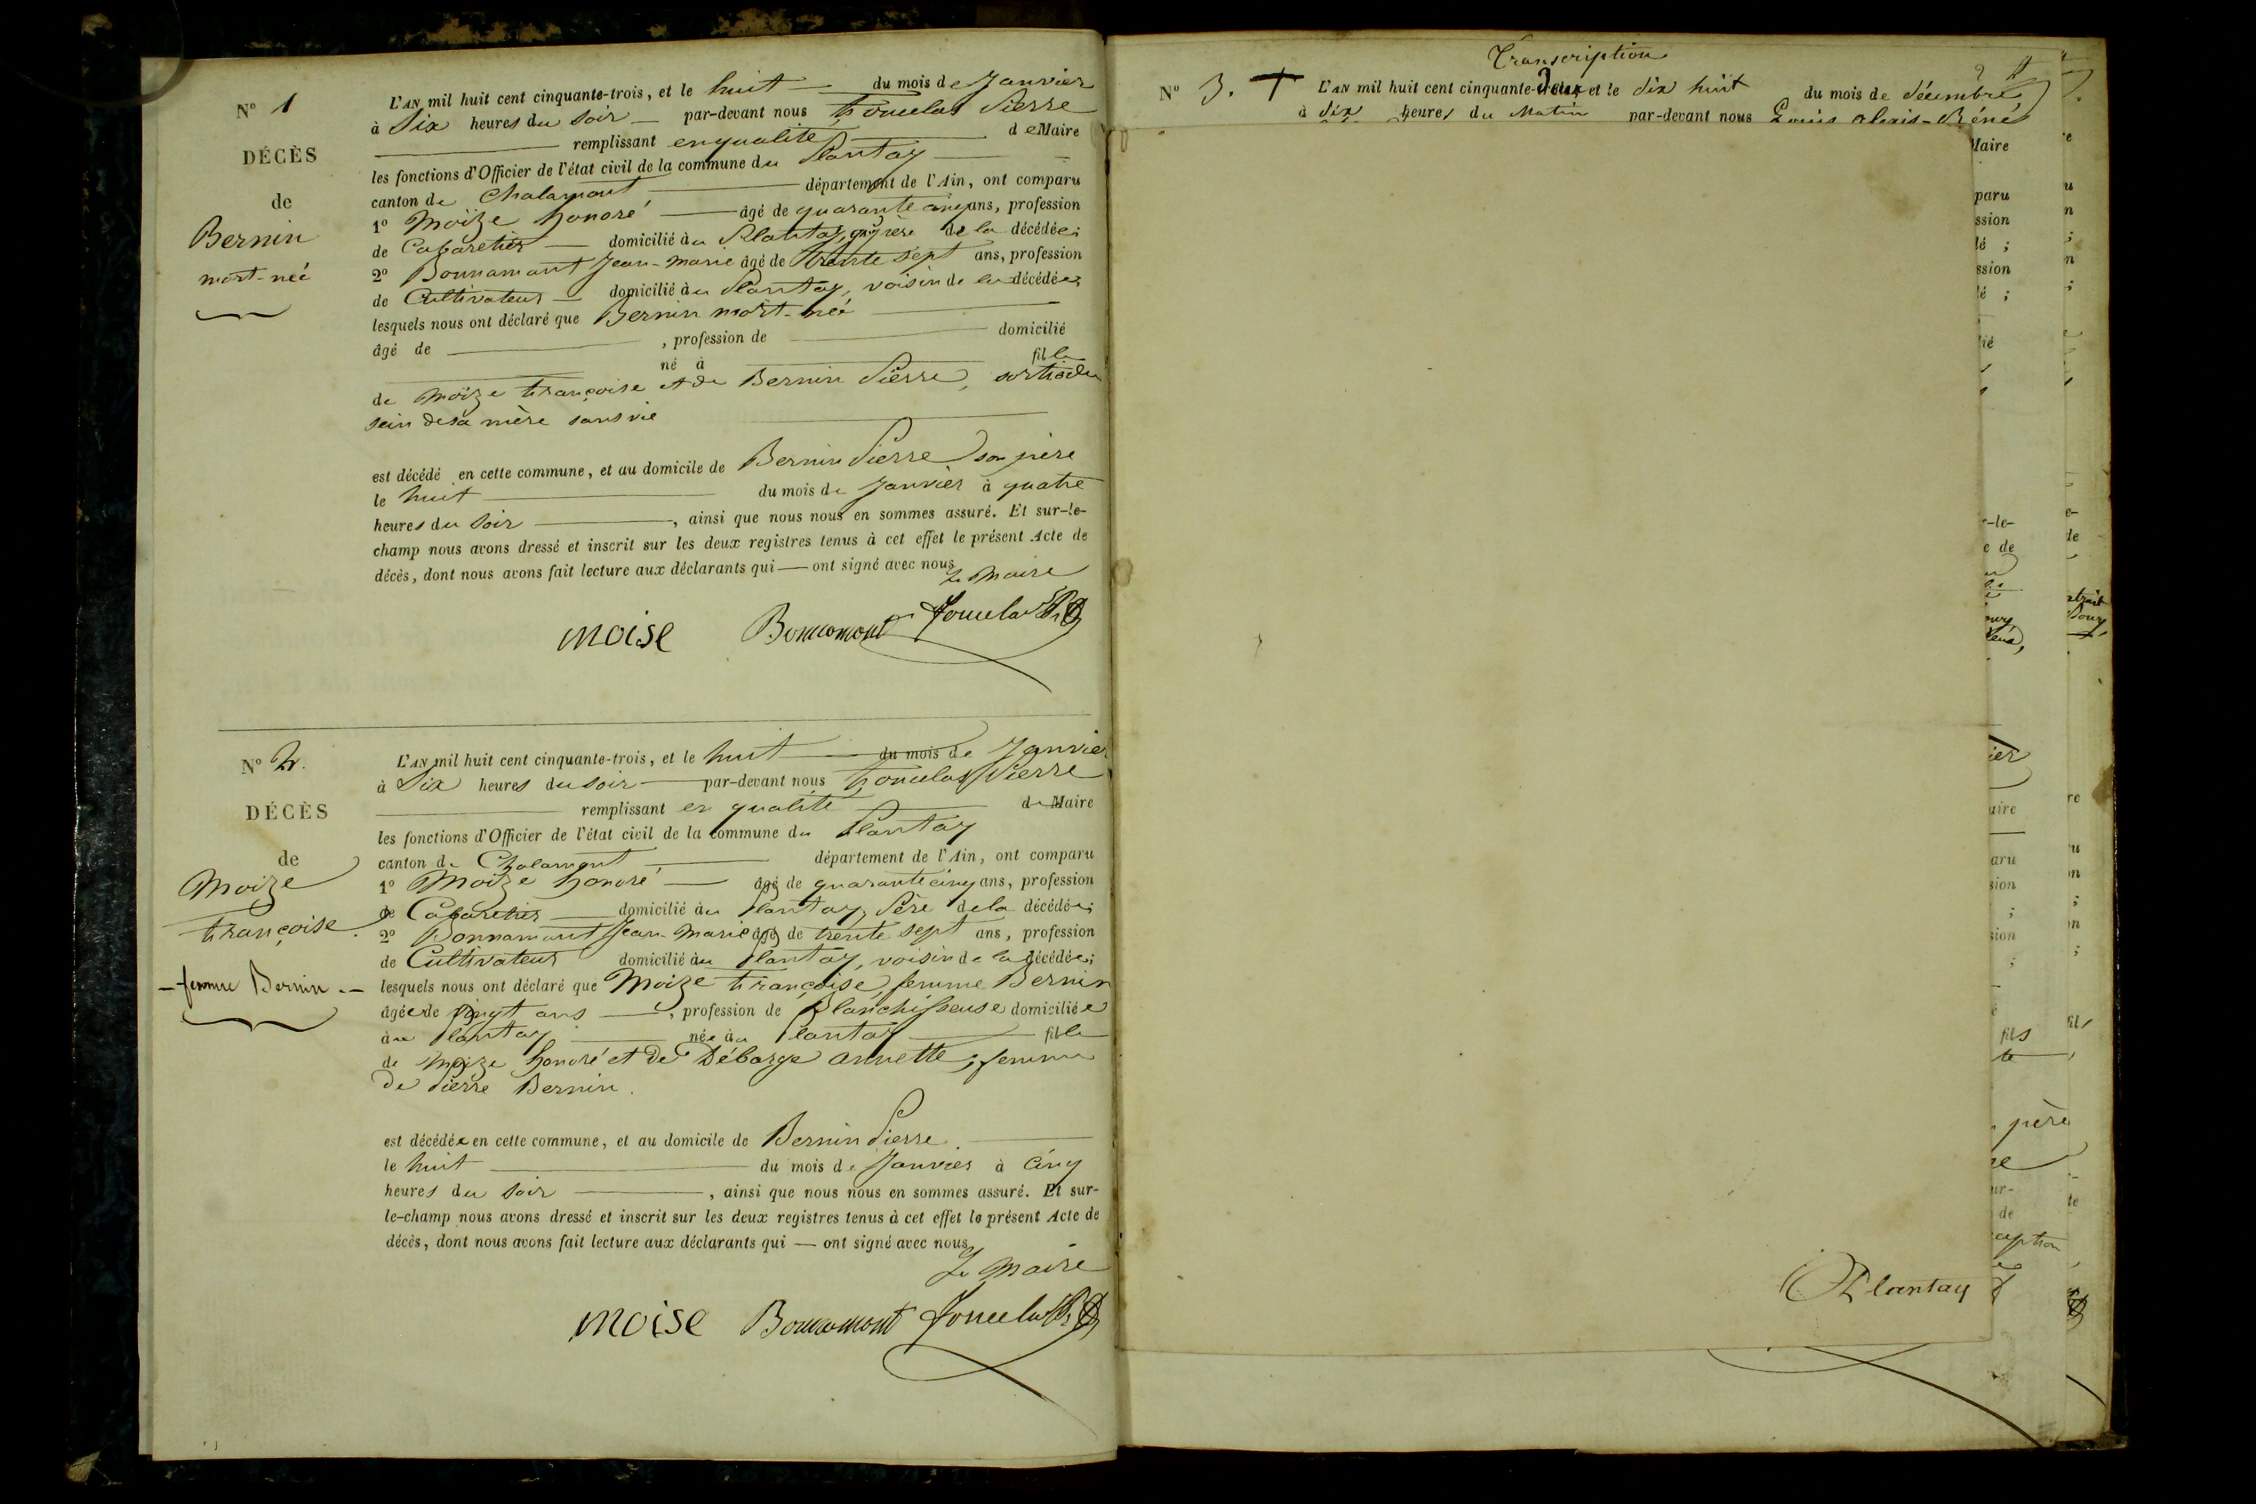 N° 1
DÉCÈS
de
Bernin
mort-née
L'AN mil huit cent cinquante-trois, et le huit du mois de Janvier
à Six heures du soir par-devant nous Pierre
remplissant en qualité de Maire
les fonctions d'Officier de l'état civil de la commune du Plantay
canton de Chalamont département de l'Ain, ont comparu
1° Moize honoré âgé de quarante cinq ans, profession
de Cabaretier domicilié au Plantay, de la décédée;
2° Bonnamont Jean-Marie âgé de trente sept ans, profession
de Cultivateur domicilié au Plantay, voisin de la décédée;
lesquels nous ont déclaré que Bernin mort-née
âgé de , profession de domicilié
né à fille
de Moize françoise et de Bernin Pierre, sortie du
sein de sa mère sans vie
est décédé en cette commune, et au domicile de Bernin Pierre son père
le huit du mois de Janvier à quatre
heures du soir , ainsi que nous nous en sommes assuré. Et sur-le-
champ nous avons dressé et inscrit sur les deux registres tenus à cet effet le présent Acte de
décès, dont nous avons fait lecture aux déclarants qui — ont signé avec nous
Le Maire
moise Bonnamont
N° 2.
DÉCÈS
de
Moize
françoise.
femme Bernin
L'AN mil huit cent cinquante-trois, et le huit du mois de Janvier
à Six heures du soir par-devant nous Pierre
remplissant en qualité de Maire
les fonctions d'Officier de l'état civil de la commune du Plantay
canton de Chalamont département de l'Ain, ont comparu
1° Moize honoré âgé de quarante cinq ans, profession
de Cabaretier domicilié au Plantay, Père de la décédée;
2° Bonnamont Jean-Marie âgé de trente sept ans, profession
de Cultivateur domicilié au Plantay, voisin de la décédée;
lesquels nous ont déclaré que Moize françoise, femme Bernin
âgée de vingt ans , profession de Blanchisseuse domiciliée
au Plantay née au Plantay fille
de Moize honoré et de Débarge annette, femme
de Pierre Bernin.
est décédée en cette commune, et au domicile de Bernin Pierre.
le huit du mois de Janvier à cinq
heures du soir , ainsi que nous nous en sommes assuré. Et sur-
le-champ nous avons dressé et inscrit sur les deux registres tenus à cet effet le présent Acte de
décès, dont nous avons fait lecture aux déclarants qui — ont signé avec nous
Le Maire
moise Bonnamont
Transcription
N° 3. L'AN mil huit cent cinquante-deux et le dix huit du mois de décembre
à dix heures du Matin par-devant nous Louis Alexis-Réné
Maire
paru
ssion
lé ;
ssion
lé ;
lié
-le-
de
ier
aire
aru
sion
;
sion
;
fils
père
ur-
de
Plantay